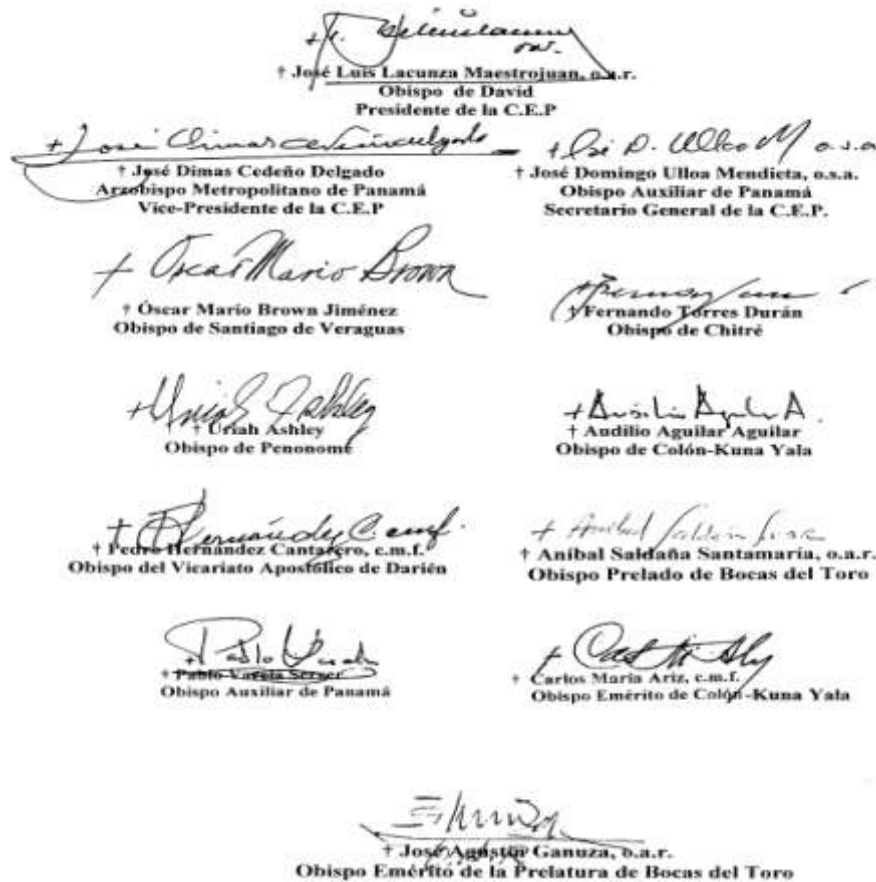 † José Luis Lacunza Maestrojuan, o.a.r.
Obispo de David
Presidente de la C.E.P
† José Dimas Cedeño Delgado
Arzobispo Metropolitano de Panamá
Vice-Presidente de la C.E.P
+ José D. Ulloa M o.s.a
† José Domingo Ulloa Mendieta, o.s.a.
Obispo Auxiliar de Panamá
Secretario General de la C.E.P.
+ Óscar Mario Brown
† Óscar Mario Brown Jiménez
Obispo de Santiago de Veraguas
† Fernando Torres Durán
Obispo de Chitré
+ Uriah Ashley
† Uriah Ashley
Obispo de Penonomé
† Audilio Aguilar Aguilar
Obispo de Colón-Kuna Yala
+ P Hernández C cmf.
† Pedro Hernández Cantarero, c.m.f.
Obispo del Vicariato Apostólico de Darién
† Aníbal Saldaña Santamaría, o.a.r.
Obispo Prelado de Bocas del Toro
† Pablo Varela Server
Obispo Auxiliar de Panamá
† Carlos María Ariz, c.m.f.
Obispo Emérito de Colón-Kuna Yala
† José Agustín Ganuza, o.a.r.
Obispo Emérito de la Prelatura de Bocas del Toro